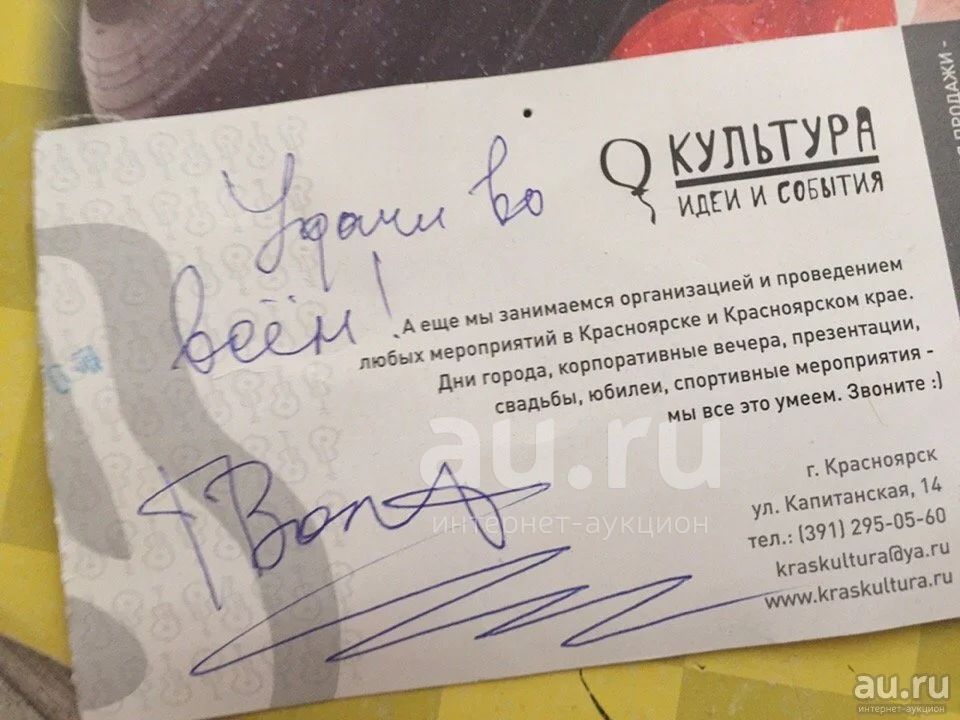 КУЛЬТУРА
ИДЕИ И СОБЫТИЯ
Удачи во
всём!
А еще мы занимаемся организацией и проведением
любых мероприятий в Красноярске и Красноярском крае.
Дни города, корпоративные вечера, презентации,
свадьбы, юбилеи, спортивные мероприятия -
мы все это умеем. Звоните :)
г. Красноярск
ул. Капитанская, 14
тел.: (391) 295-05-60
kraskultura@ya.ru
www.kraskultura.ru
ПРОДАЖИ -
au.ru
интернет-аукцион
au.ru
интернет-аукцион